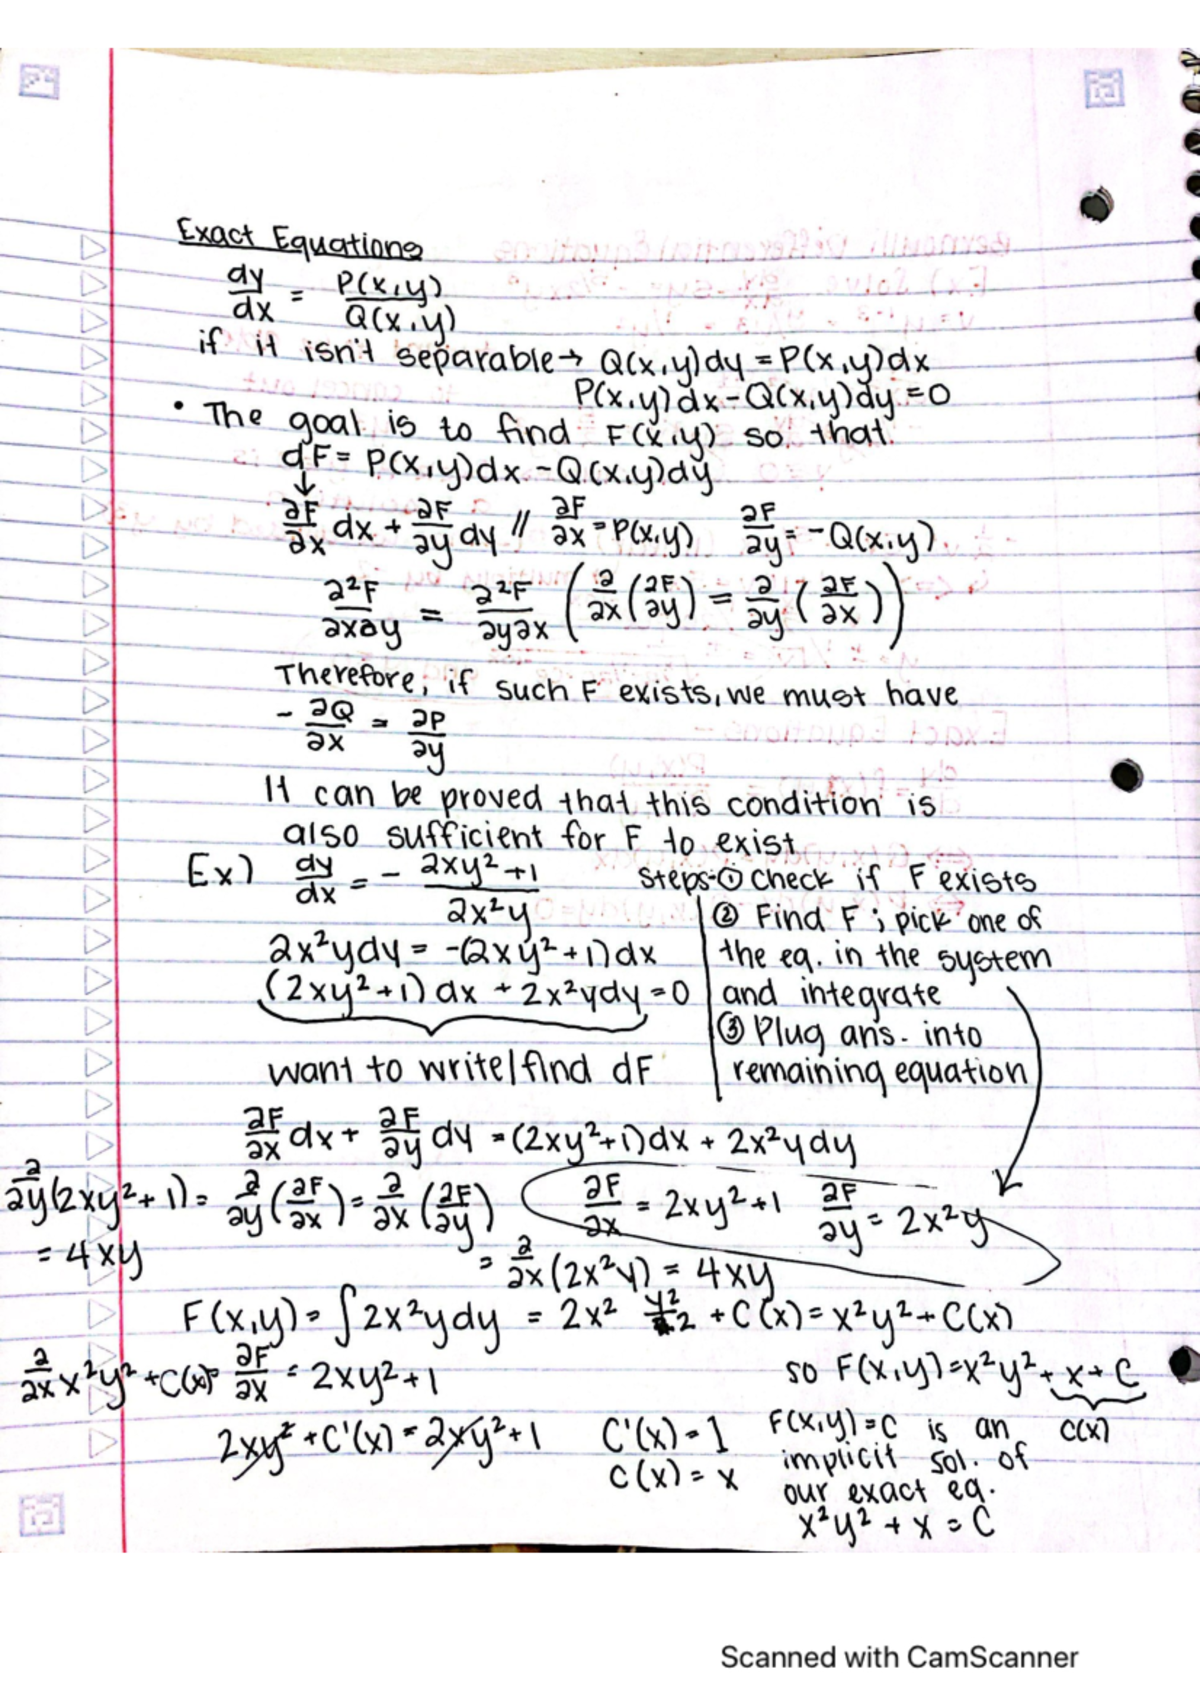 Exact Equations
dy/dx = P(x,y)/Q(x,y)
if it isn't separable → Q(x,y)dy = P(x,y)dx
P(x,y)dx - Q(x,y)dy = 0
• The goal is to find F(x,y) so that
dF = P(x,y)dx - Q(x,y)dy
↓
∂F/∂x dx + ∂F/∂y dy // ∂F/∂x = P(x,y) ∂F/∂y = -Q(x,y)
∂²F/∂x∂y = ∂²F/∂y∂x (∂/∂x (∂F/∂y) = ∂/∂y (∂F/∂x))
Therefore, if such F exists, we must have
- ∂Q/∂x = ∂P/∂y
It can be proved that this condition is
also sufficient for F to exist
Ex) dy/dx = - 2xy²+1/2x²y
2x²ydy = -(2xy²+1)dx
(2xy²+1)dx + 2x²ydy = 0
want to write/find dF
Steps-① Check if F exists
② Find F ; pick one of
the eq. in the system
and integrate
③ Plug ans. into
remaining equation
∂F/∂x dx + ∂F/∂y dy = (2xy²+1)dx + 2x²ydy
∂/∂y(2xy²+1) = ∂/∂y (∂F/∂x) = ∂/∂x (∂F/∂y) ∂F/∂x = 2xy²+1 ∂F/∂y = 2x²y
= 4xy = ∂/∂x (2x²y) = 4xy
F(x,y) = ∫2x²ydy = 2x² y²/2 + C(x) = x²y² + C(x)
∂/∂x x²y² + C(x) = ∂F/∂x = 2xy²+1 so F(x,y) = x²y² + x + C
2xy² + C'(x) = 2xy²+1 C'(x) = 1
C(x) = x
C(x)
F(x,y) = C is an
implicit sol. of
our exact eq.
x²y² + x = C
Scanned with CamScanner